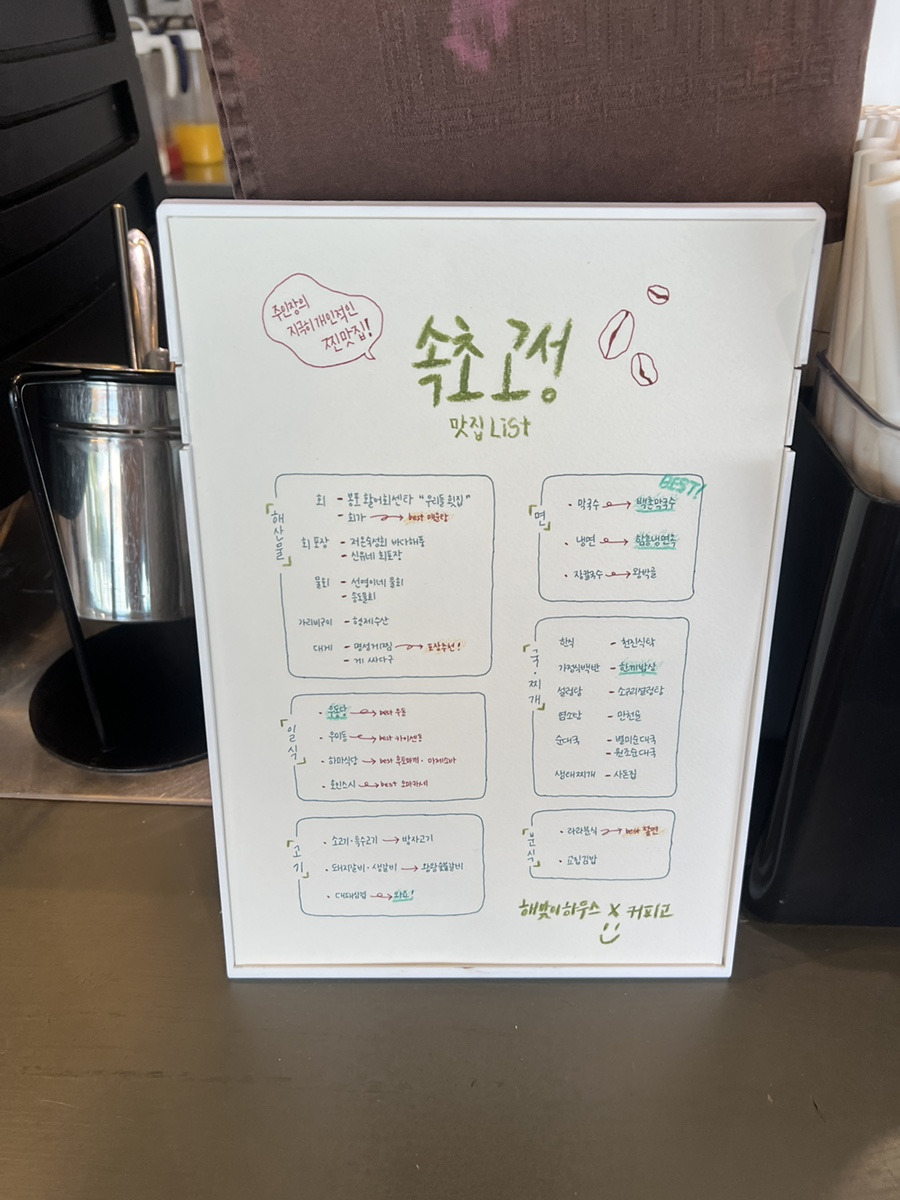 주인장의
지극히 개인적인
찐맛집!
속초 고성
맛집 List
해산물
회 - 봉포 활어회센타 "우리들 횟집"
- 회가 → best 매운탕
회 포장 - 저온숙성회 바다해풍
- 신유네 회포장
물회 - 선영이네 물회
- 송도물회
가리비구이 - 형제수산
대게 - 명성게찜 → 포장추천!
- 게 싸다구
일식
· 우동당 → best 우동
· 우미동 → best 카이센동
· 하마식당 → best 후토마끼 · 마제소바
· 호인스시 → best 오마카세
고기
· 소고기·특수고기 → 방자고기
· 돼지갈비·생갈비 → 왕탐숯불갈비
· 대패삼겹 →
면
BEST!
· 막국수 → 백촌막국수
· 냉면 → 함흥냉면옥
· 장칼국수 → 왕박골
국·찌개
한식 - 천진식탁
가정식백반 - 한끼밥상
설렁탕 - 소리설렁탕
염소탕 - 만천골
순대국 - 별미순대국
- 원조순대국
생태찌개 - 사돈집
분식
· 라라분식 → best 쫄면
· 교림김밥
해맞이하우스 X 커피고